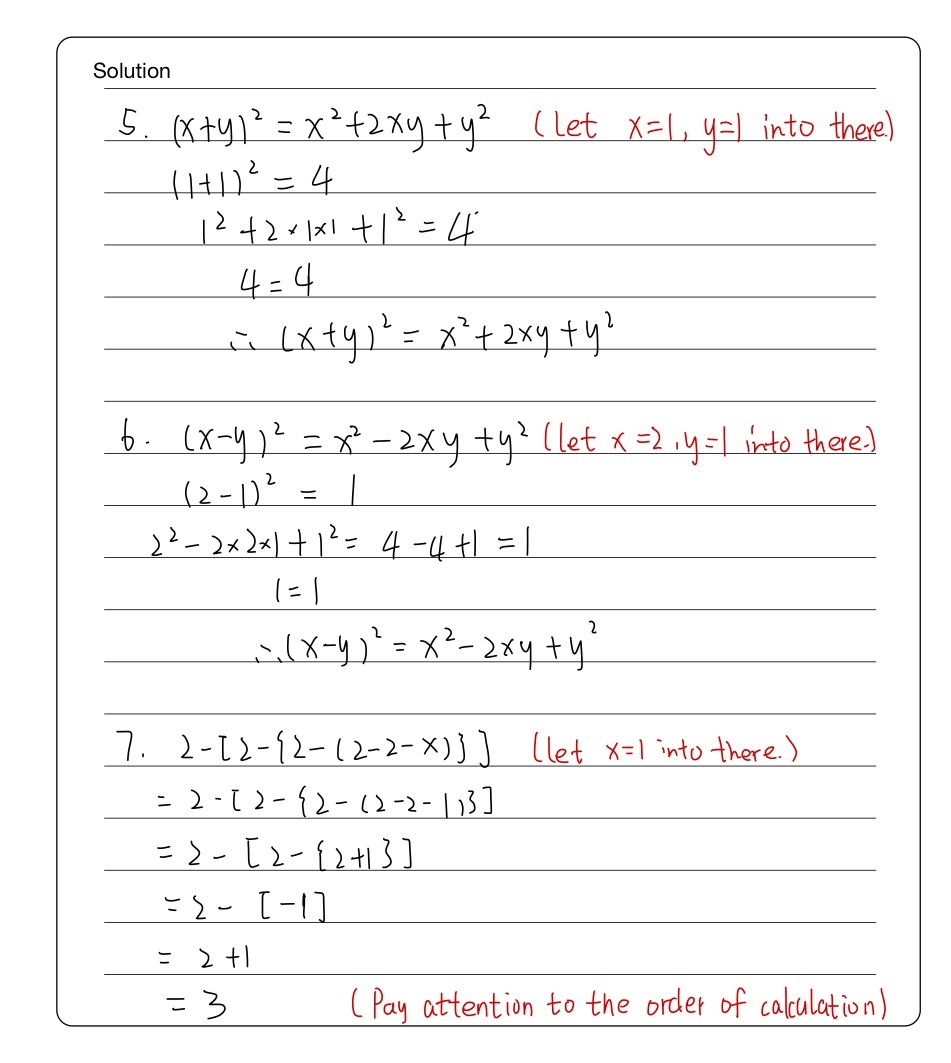 Solution
5. (x+y)² = x²+2xy+y² (Let x=1, y=1 into there.)
(1+1)² = 4
1²+2×1×1+1² = 4
4=4
∴ (x+y)² = x²+2xy+y²
6. (x-y)² = x²-2xy+y² (let x=2, y=1 into there.)
(2-1)² = 1
2²-2×2×1+1² = 4-4+1 = 1
1=1
∴ (x-y)² = x²-2xy+y²
7. 2-[2-{2-(2-2-x)}] (let x=1 into there.)
= 2-[2-{2-(2-2-1)}]
= 2-[2-{2+1}]
= 2-[-1]
= 2+1
= 3 (Pay attention to the order of calculation)